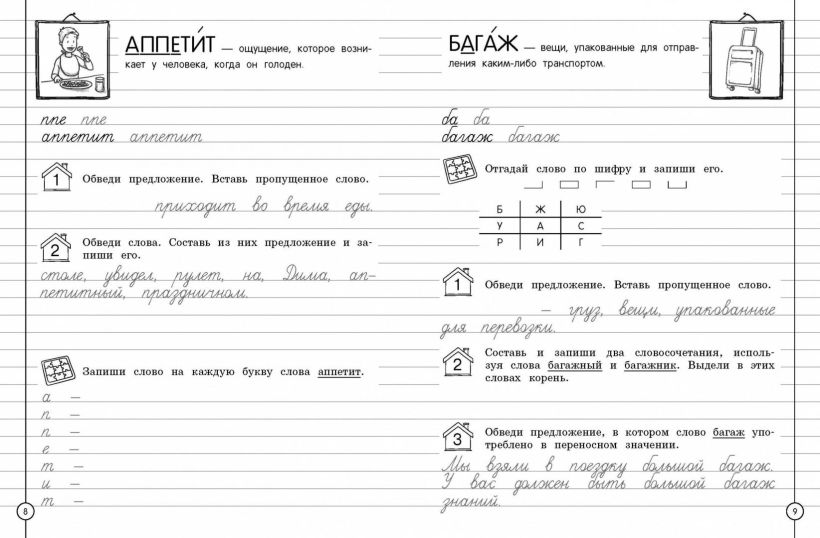 АППЕТИ́Т — ощущение, которое возни-
кает у человека, когда он голоден.
ппе ппе
аппетит аппетит
1 Обведи предложение. Вставь пропущенное слово.
приходит во время еды.
2 Обведи слова. Составь из них предложение и за-
пиши его.
столе, увидел, рулет, на, Дима, ап-
петитный, праздничном.
Запиши слово на каждую букву слова аппетит.
а —
п —
п —
е —
т —
и —
т —
8
БАГА́Ж — вещи, упакованные для отправ-
ления каким-либо транспортом.
ба ба
багаж багаж
Отгадай слово по шифру и запиши его.
Б Ж Ю
У А С
Р И Г
1 Обведи предложение. Вставь пропущенное слово.
— груз, вещи, упакованные
для перевозки.
2 Составь и запиши два словосочетания, исполь-
зуя слова багажный и багажник. Выдели в этих
словах корень.
3 Обведи предложение, в котором слово багаж упо-
треблено в переносном значении.
Мы взяли в поездку большой багаж.
У вас должен быть большой багаж
знаний.
9